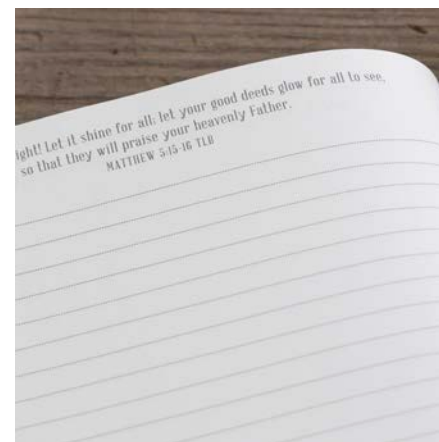 ight! Let it shine for all; let your good deeds glow for all to see,
so that they will praise your heavenly Father.
MATTHEW 5:15-16 TLB